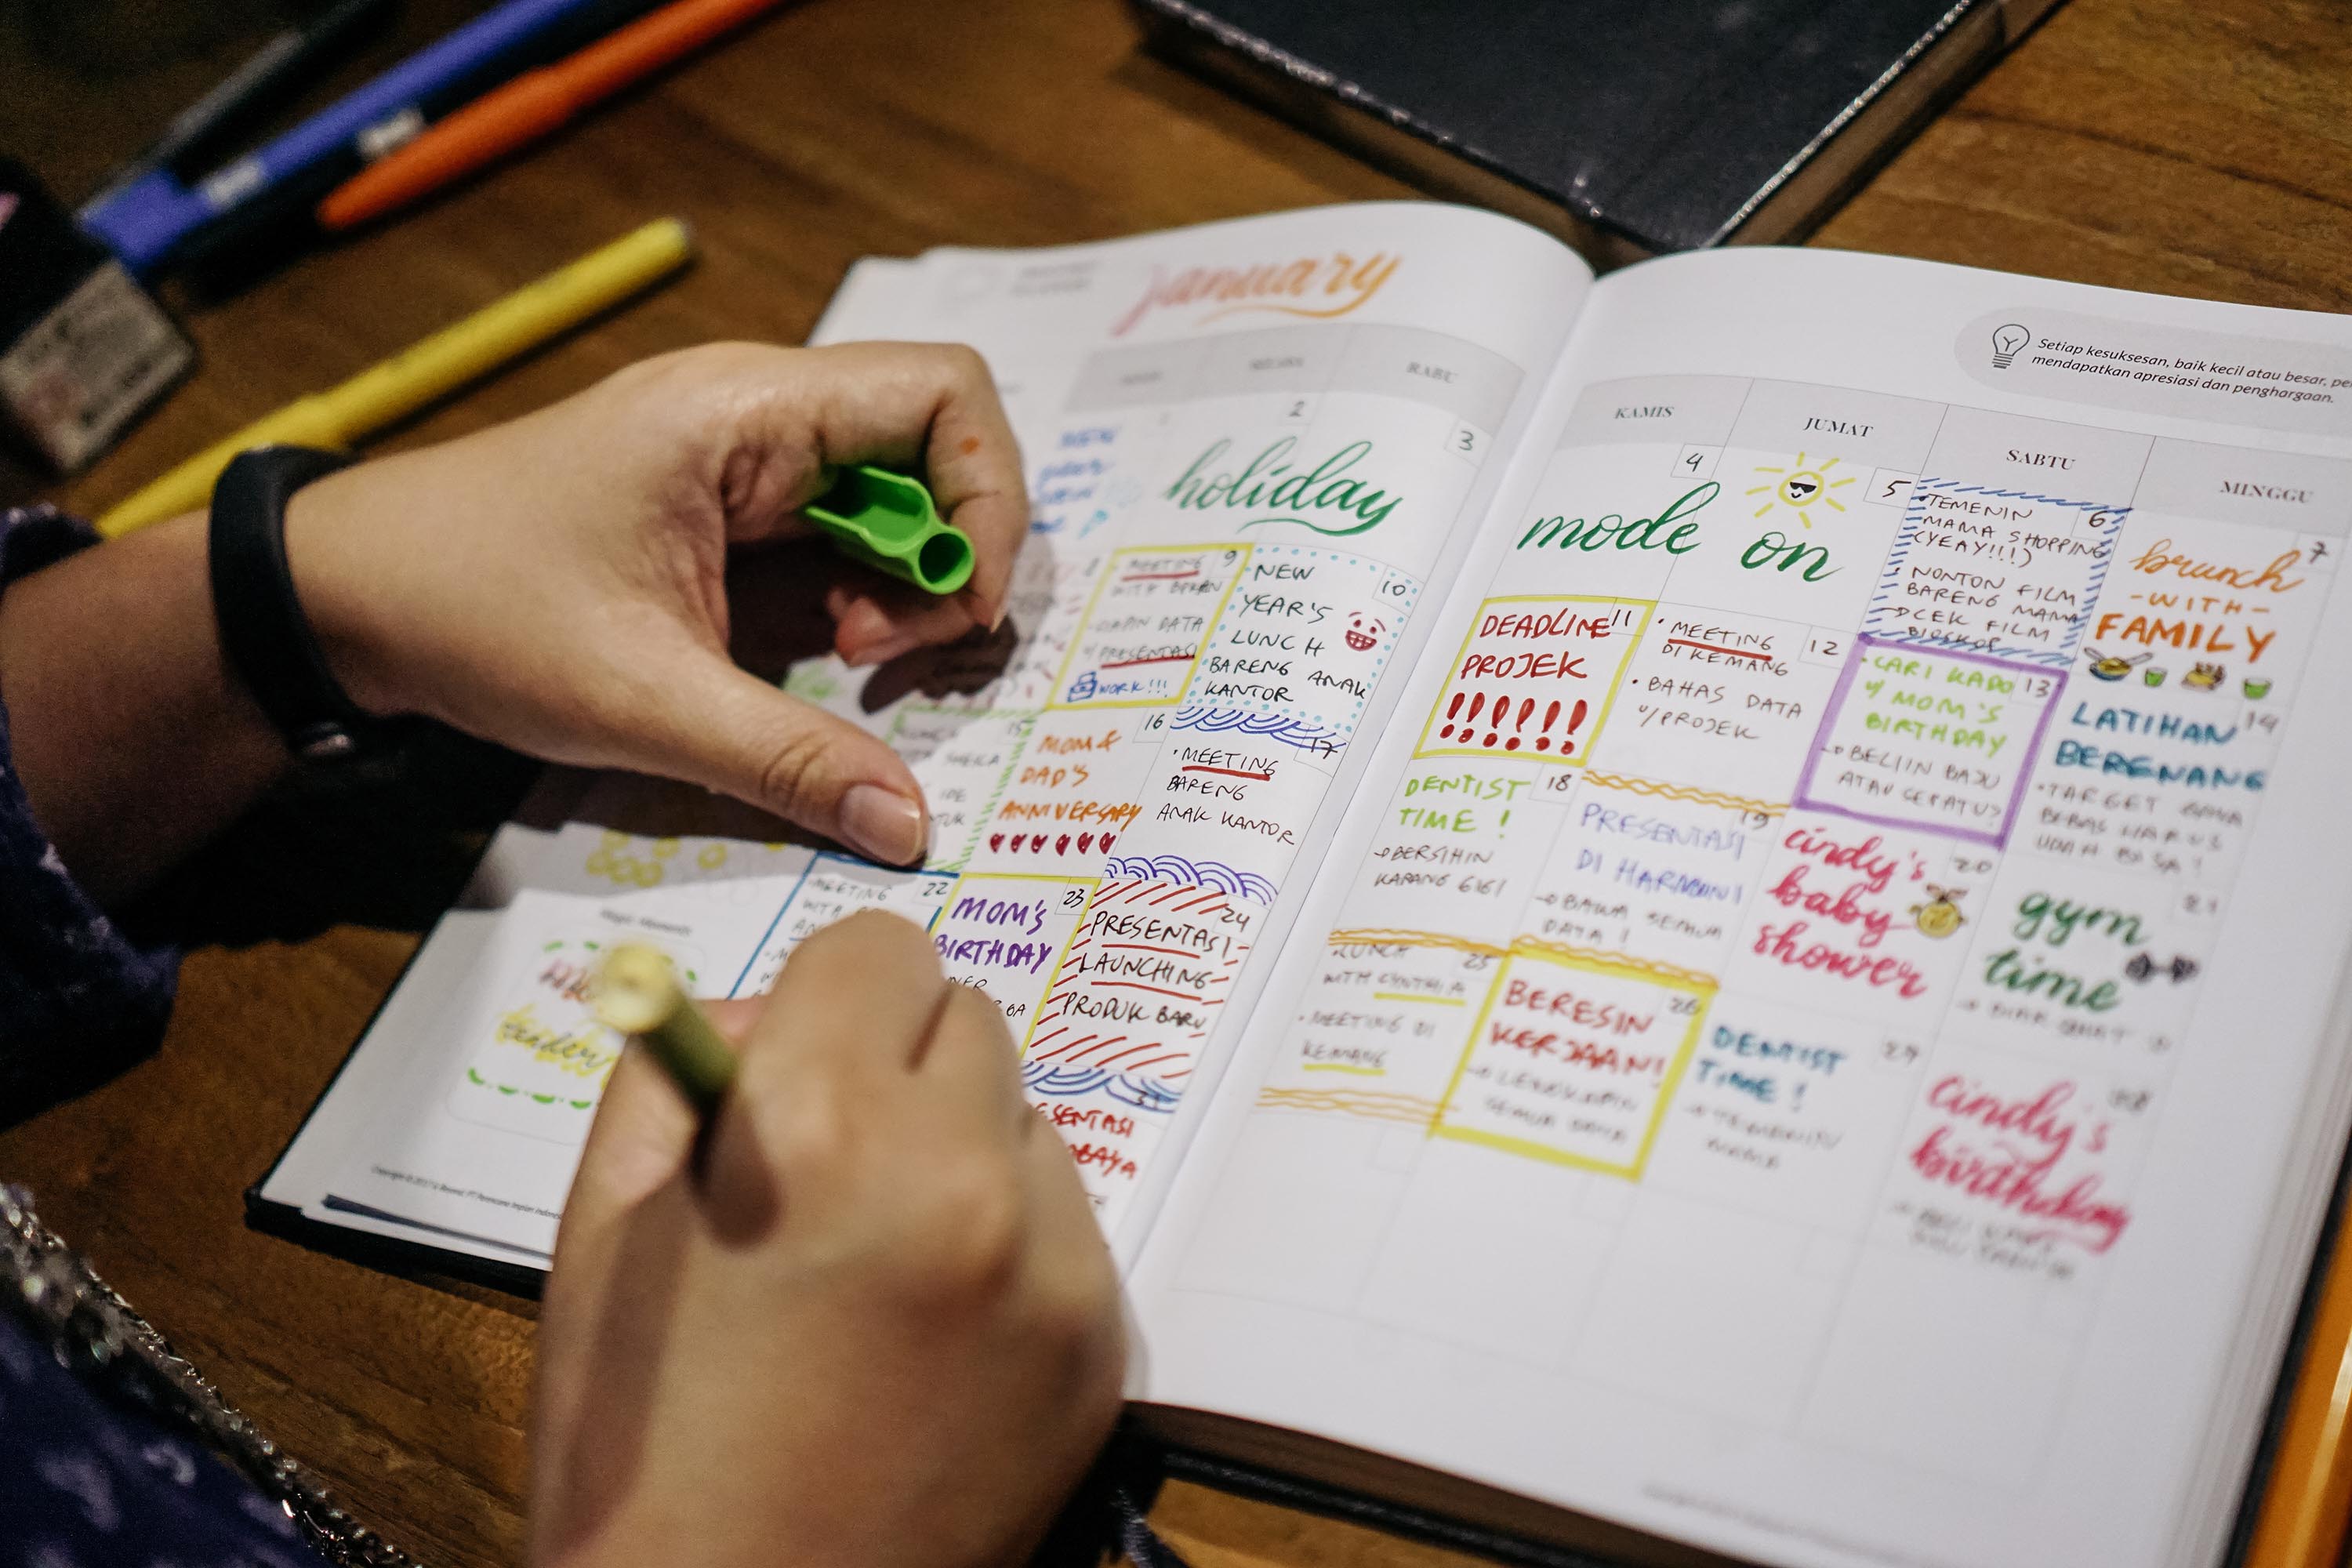 january
RABU
KAMIS
JUMAT
SABTU
MINGGU
Setiap kesuksesan, baik kecil atau besar,
mendapatkan apresiasi dan penghargaan.
NEW
2
3
holiday
4
mode on
5
6
• TEMENIN
MAMA SHOPPING
(YEAY!!!)
• NONTON FILM
BARENG MAMA
CEK FILM
BIOSKOP
7
brunch
-WITH-
FAMILY
8
9
• MEETING
WITH
DATA
PRESENTASI
WORK!!!
10
• NEW
YEAR'S
LUNCH
BARENG ANAK
KANTOR
11
DEADLINE
PROJEK
!!!!!!
12
• MEETING
DI KEMANG
• BAHAS DATA
U/PROJEK
13
• CARI KADO
U/ MOM'S
BIRTHDAY
→ BELIIN BAJU
ATAU SEPATU?
14
LATIHAN
BERENANG
• TARGET GAYA
BEBAS HARUS
UDAH BISA!
15
SHEILA
IDE
16
MOM &
DAD'S
ANNIVERSARY
17
• MEETING
BARENG
ANAK KANTOR
18
DENTIST
TIME !
→ BERSIHIN
KARANG GIGI
19
PRESENTASI
DI HARMONI
→ BAWA SEMUA
DATA !
20
cindy's
baby
shower
21
gym
time
22
MEETING
23
MOM'S
BIRTHDAY
24
PRESENTASI
LAUNCHING
PRODUK BARU
25
LUNCH
WITH CYNTHIA
• MEETING DI
KEMANG
26
BERESIN
KERJAAN!
→ LENGKAPIN
SEMUA DATA
DENTIST
TIME !
→ TEMENIN
MAMA
cindy's
birthday
31